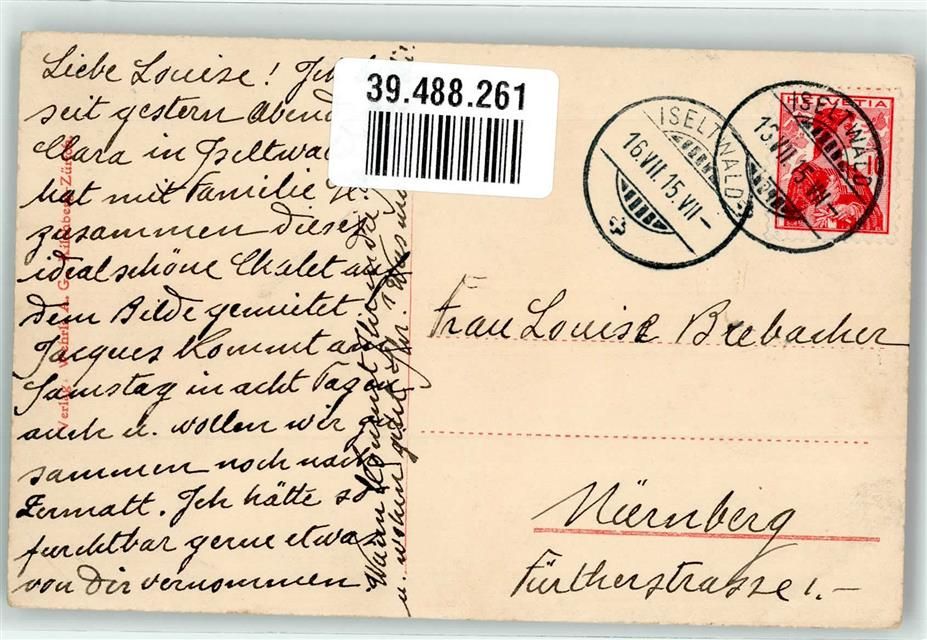 Liebe Louise! Ich
seit gestern Abend
Clara in Iseltwa
hat mit Familie
zusammen dieses
idealschöne Chalet auf
dem Bilde gemietet
Jacques kommt am
Samstag in acht Tagen
auch u. wollen wir
sammen noch nach
Zermatt. Ich hätte so
furchtbar gerne etwas
von Dir vernommen
Wann kommt
u. wohin geht
Verlag Wehrli A. G. Kilchberg Zürich
39.488.261
ISELTWALD
16.VII.15.VII-
ISELTWALD
16.VII.15.VII-
HELVETIA
10
Frau Louise Brebacher
Nürnberg
Fürtherstrasse 1.-